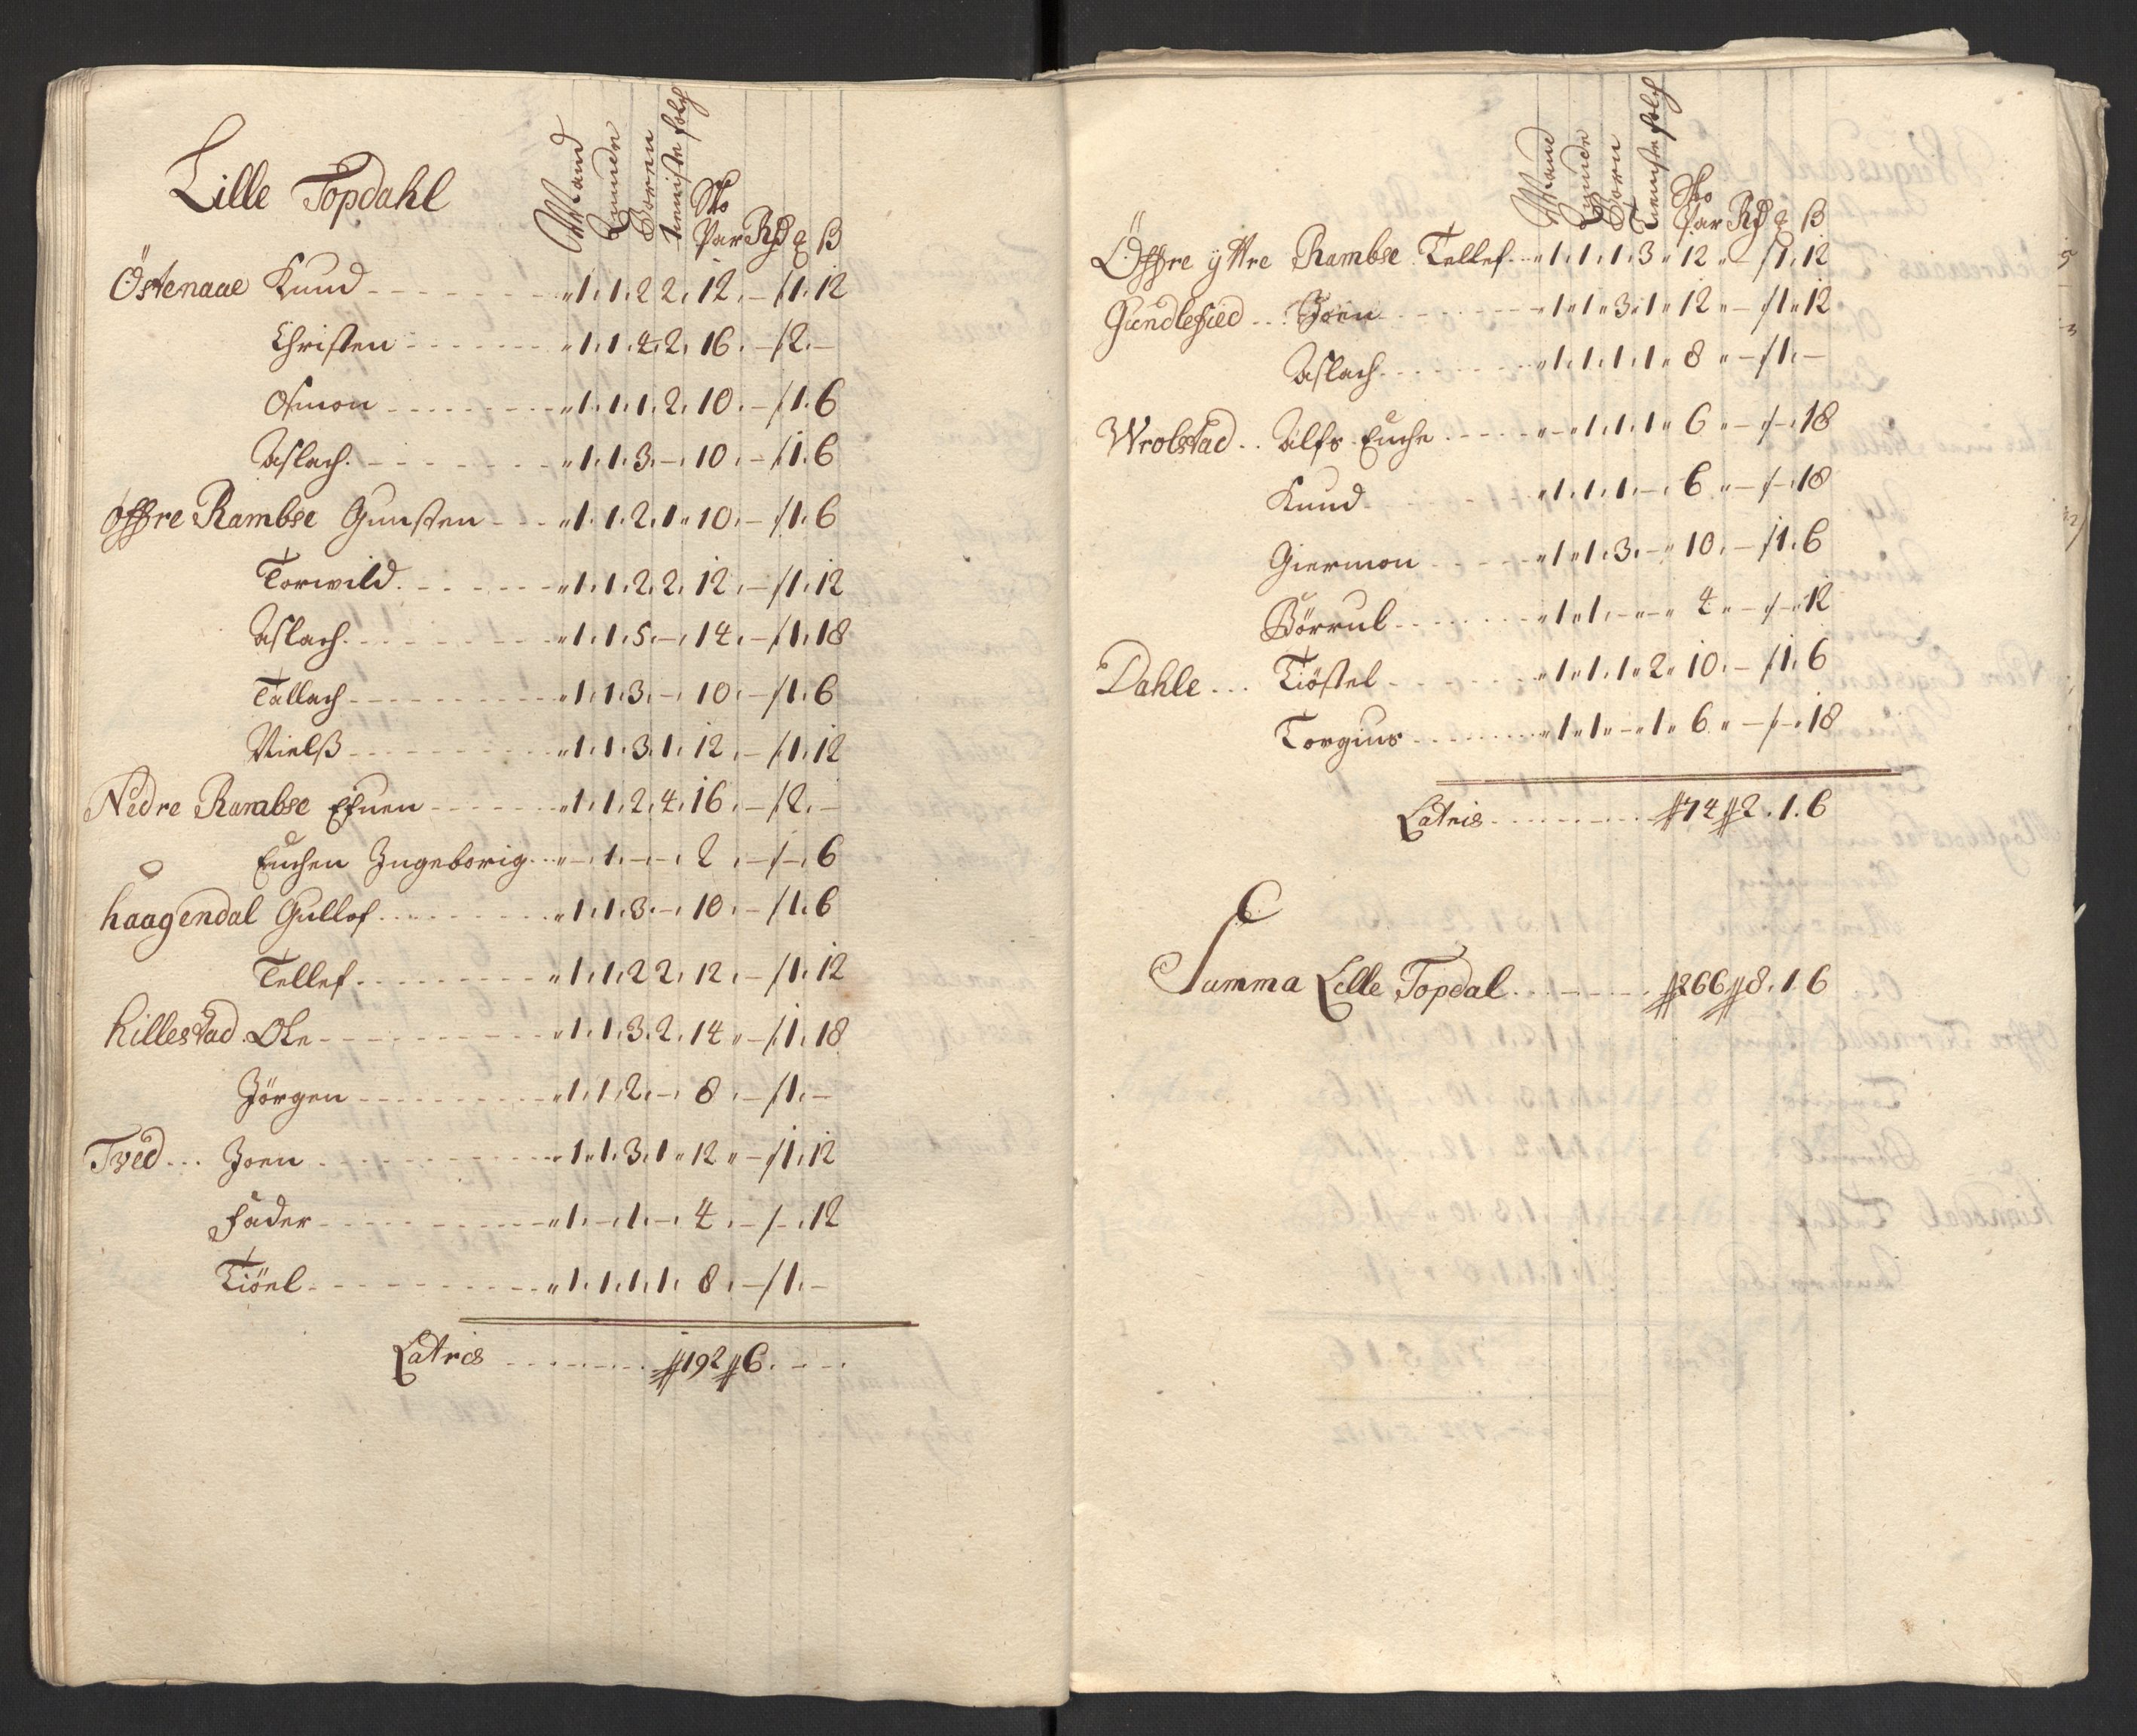 Lille Topdahl
Mand Quinde Bören tienniste folch Sko Par Rd q ß
Östenaae Knud - - - 1. 1. 2 2. 12. - /1. 12
Christen - - - 1. 1. 4. 2. 16. - /2. -
Osmon - - - 1. 1. 1. 2. 10. - /1. 6
Aslach. - - - 1. 1. 3. - 10. - /1. 6
öffre Rambse Gunsten - - - 1. 1. 2. 1. 10. - /1. 6
Torwild. - - - 1. 1. 2. 2. 12. - /1. 12
Aslach. - - - 1. 1. 5. - 14. - /1. 18
Tallach - - - 1. 1. 3. - 10. - /1. 6
Nielß - - - 1. 1. 3. 1. 12. - /1. 12
Nedre Rambse Efuen - - - 1. 1. 2. 4. 16. - /2. -
Enchen Ingeborig - - - - 1. - - 2. - /- 6
haagendal Gullof - - - 1. 1. 3. - 10. - /1. 6
Tellef - - - 1. 1. 2 2. 12. - /1. 12
hillestad. Ole - - - 1. 1. 3. 2. 14 - /1. 18
Jörgen - - - 1. 1. 2. - 8. - /1. -
Tved ... Joen - - - 1. 1. 3. 1. 12 - /1. 12
Fader - - - 1. - 1. - 4. - /- 12
Tiöel - - - 1. 1. 1. 1. 8. - /1. -
Latris - - - 192 6. - -
Mand Quinde Börn Tienniste folch Sko Par Rd q ß
Öffre ÿttre Rambse Tellef - - 1. 1. 1. 3. 12 - /1. 12
Gundlefied ... Joen - - - 1. 1. 3. 1. 12 - /1. 12
Aslach - - - 1. 1. 1. 1. 8 - /1. -
Wrolstad .. Alfs Enche - - - - 1. 1. 1. 6 - /- 18
Knud - - - 1. 1. 1. - 6 - /- 18
Giermon - - - 1. 1. 3. - 10. - /1. 6
Börrul - - - 1. 1. - - 4 - /- 12
Dahle ... Tiöstel - - - 1. 1. 1. 2. 10. - /1. 6
Torgius - - - 1. 1. - 1. 6 - /- 18
Latris - - - 74 2. 1. 6
Summa Lille Topdal - - - 266 8. 1. 6